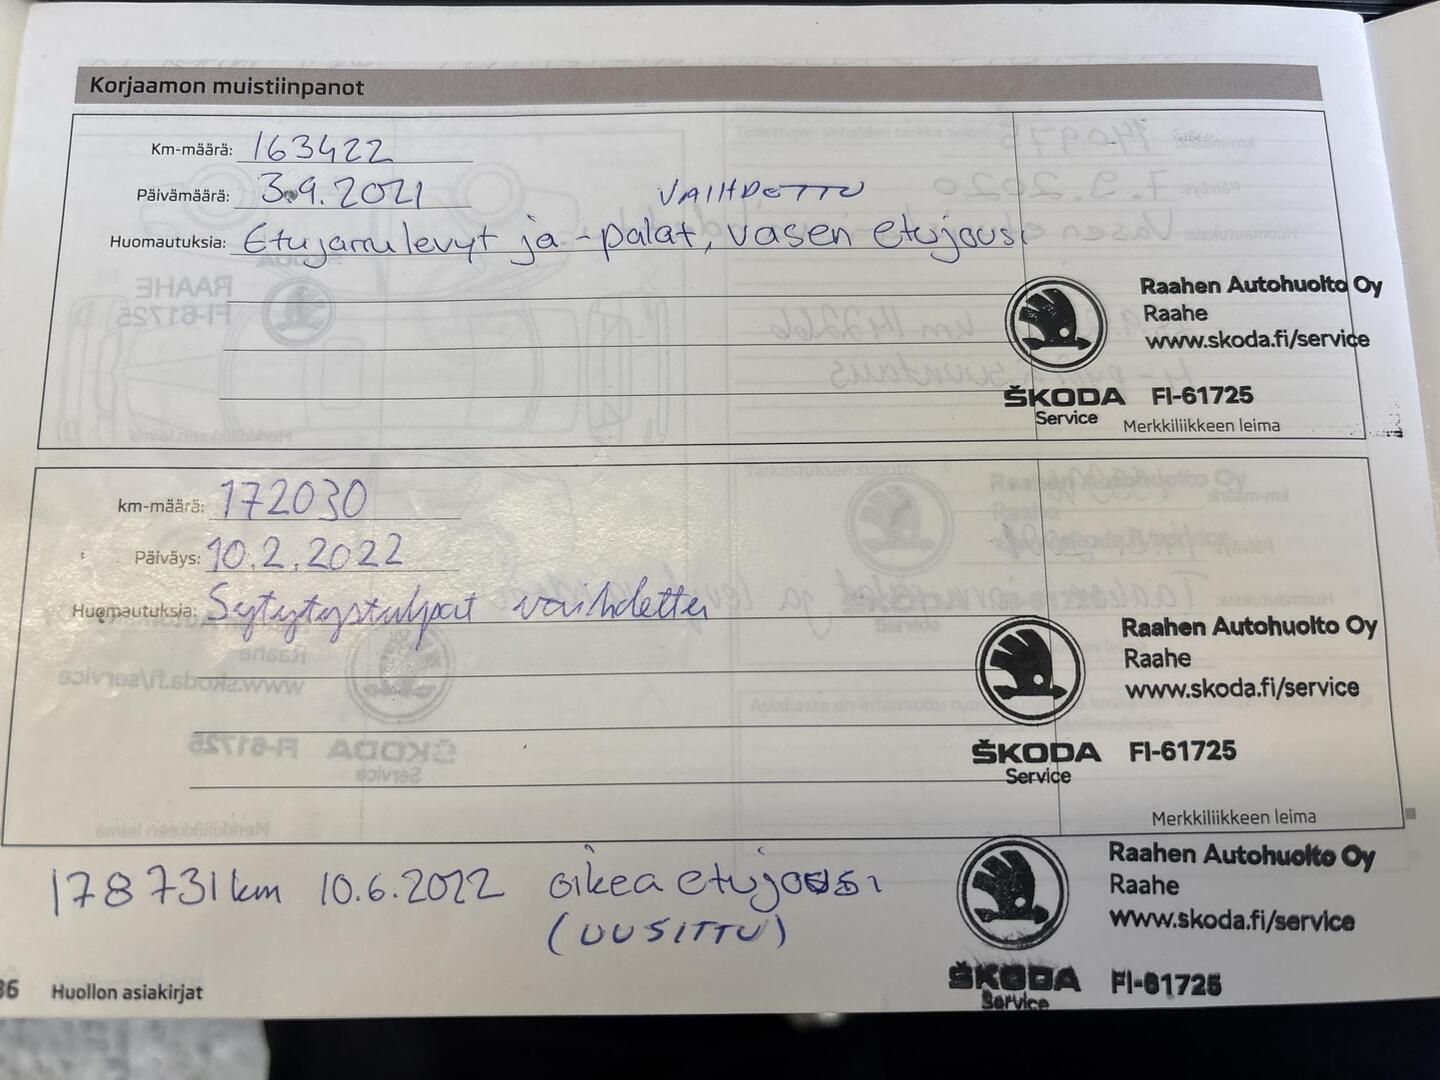 Korjaamon muistiinpanot
Km-määrä: 163422
Päivämäärä: 3.9.2021
VAIHDETTU
Huomautuksia: Etujarrulevyt ja -palat, vasen etujousi
Raahen Autohuolto Oy
Raahe
www.skoda.fi/service
ŠKODA FI-61725
Service
Merkkiliikkeen leima
km-määrä: 172030
Päiväys: 10.2.2022
Huomautuksia: Sytytystulpat vaihdettu
Raahen Autohuolto Oy
Raahe
www.skoda.fi/service
ŠKODA FI-61725
Service
Merkkiliikkeen leima
178731km 10.6.2022 oikea etujousi
(UUSITTU)
Raahen Autohuolto Oy
Raahe
www.skoda.fi/service
ŠKODA FI-61725
Service
36 Huollon asiakirjat